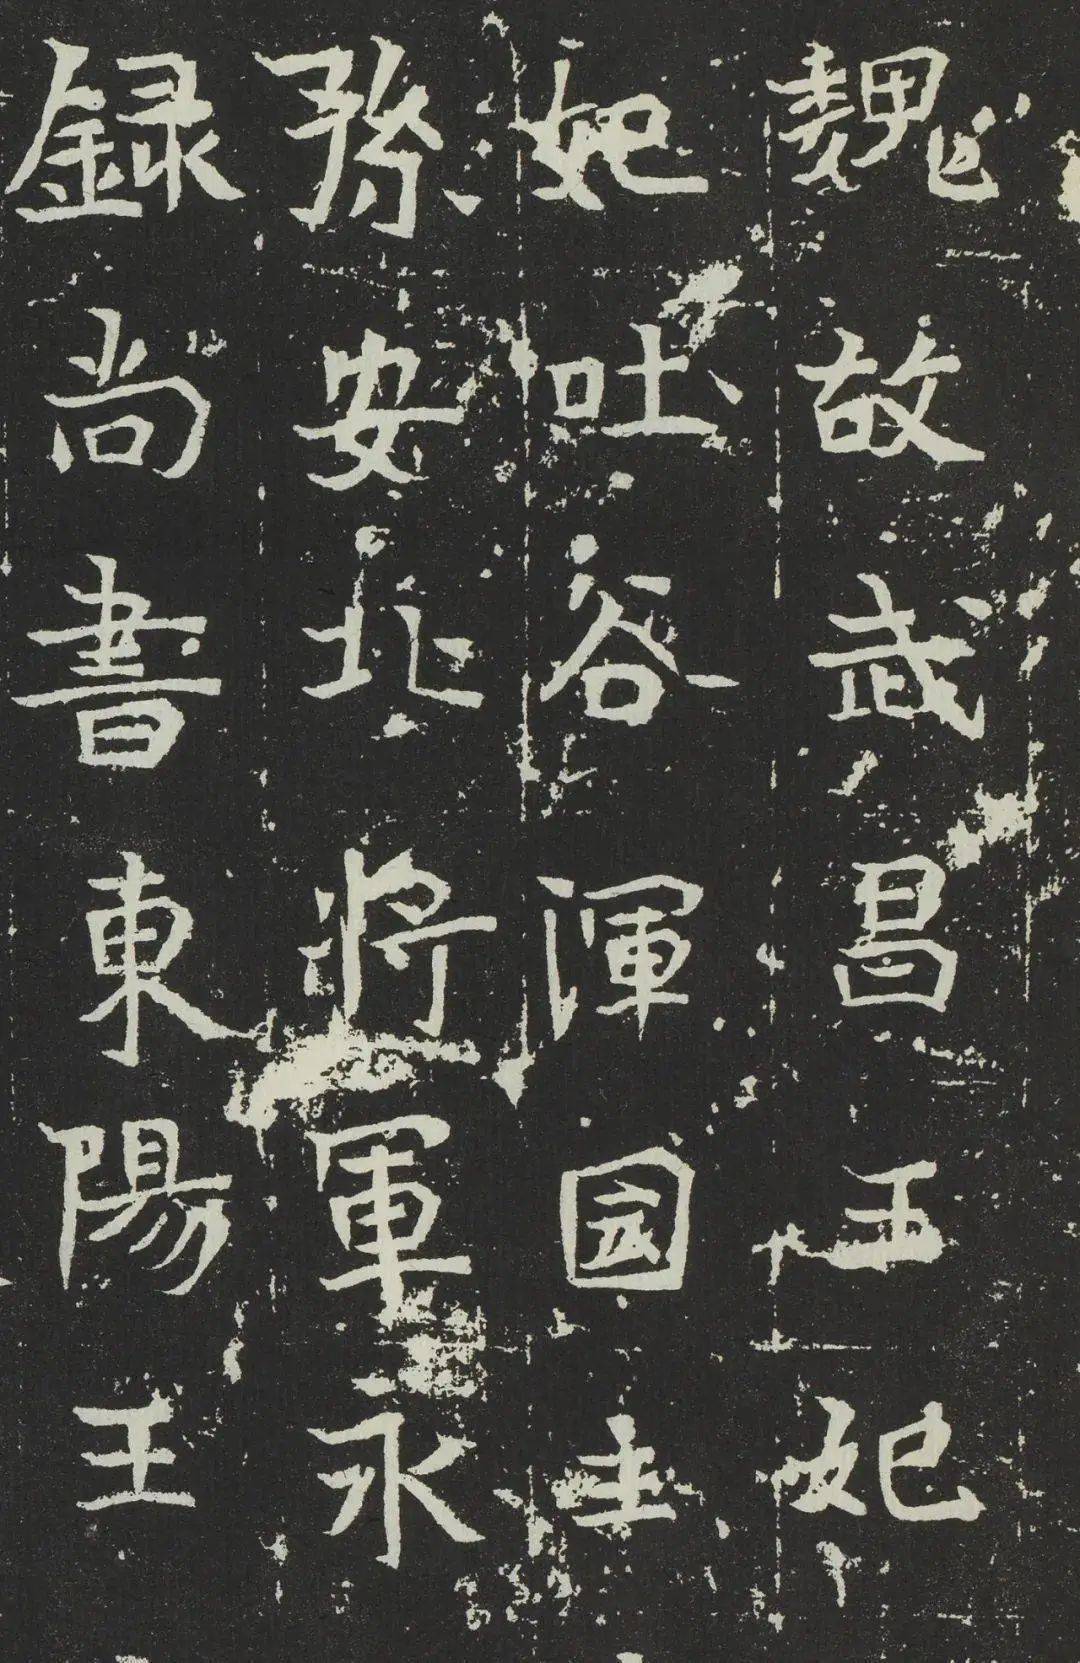 魏故武昌王妃
妃吐谷渾國主
孫安北將軍永
録尚書東陽王